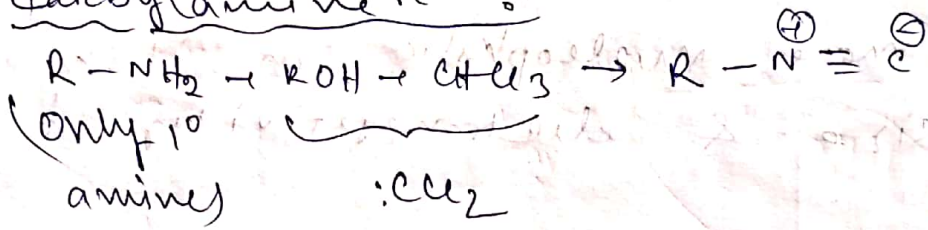 R-NH₂ + KOH + CHCl₃ → R-N⊕≡C⊖
(only 1°
amines) :CCl₂